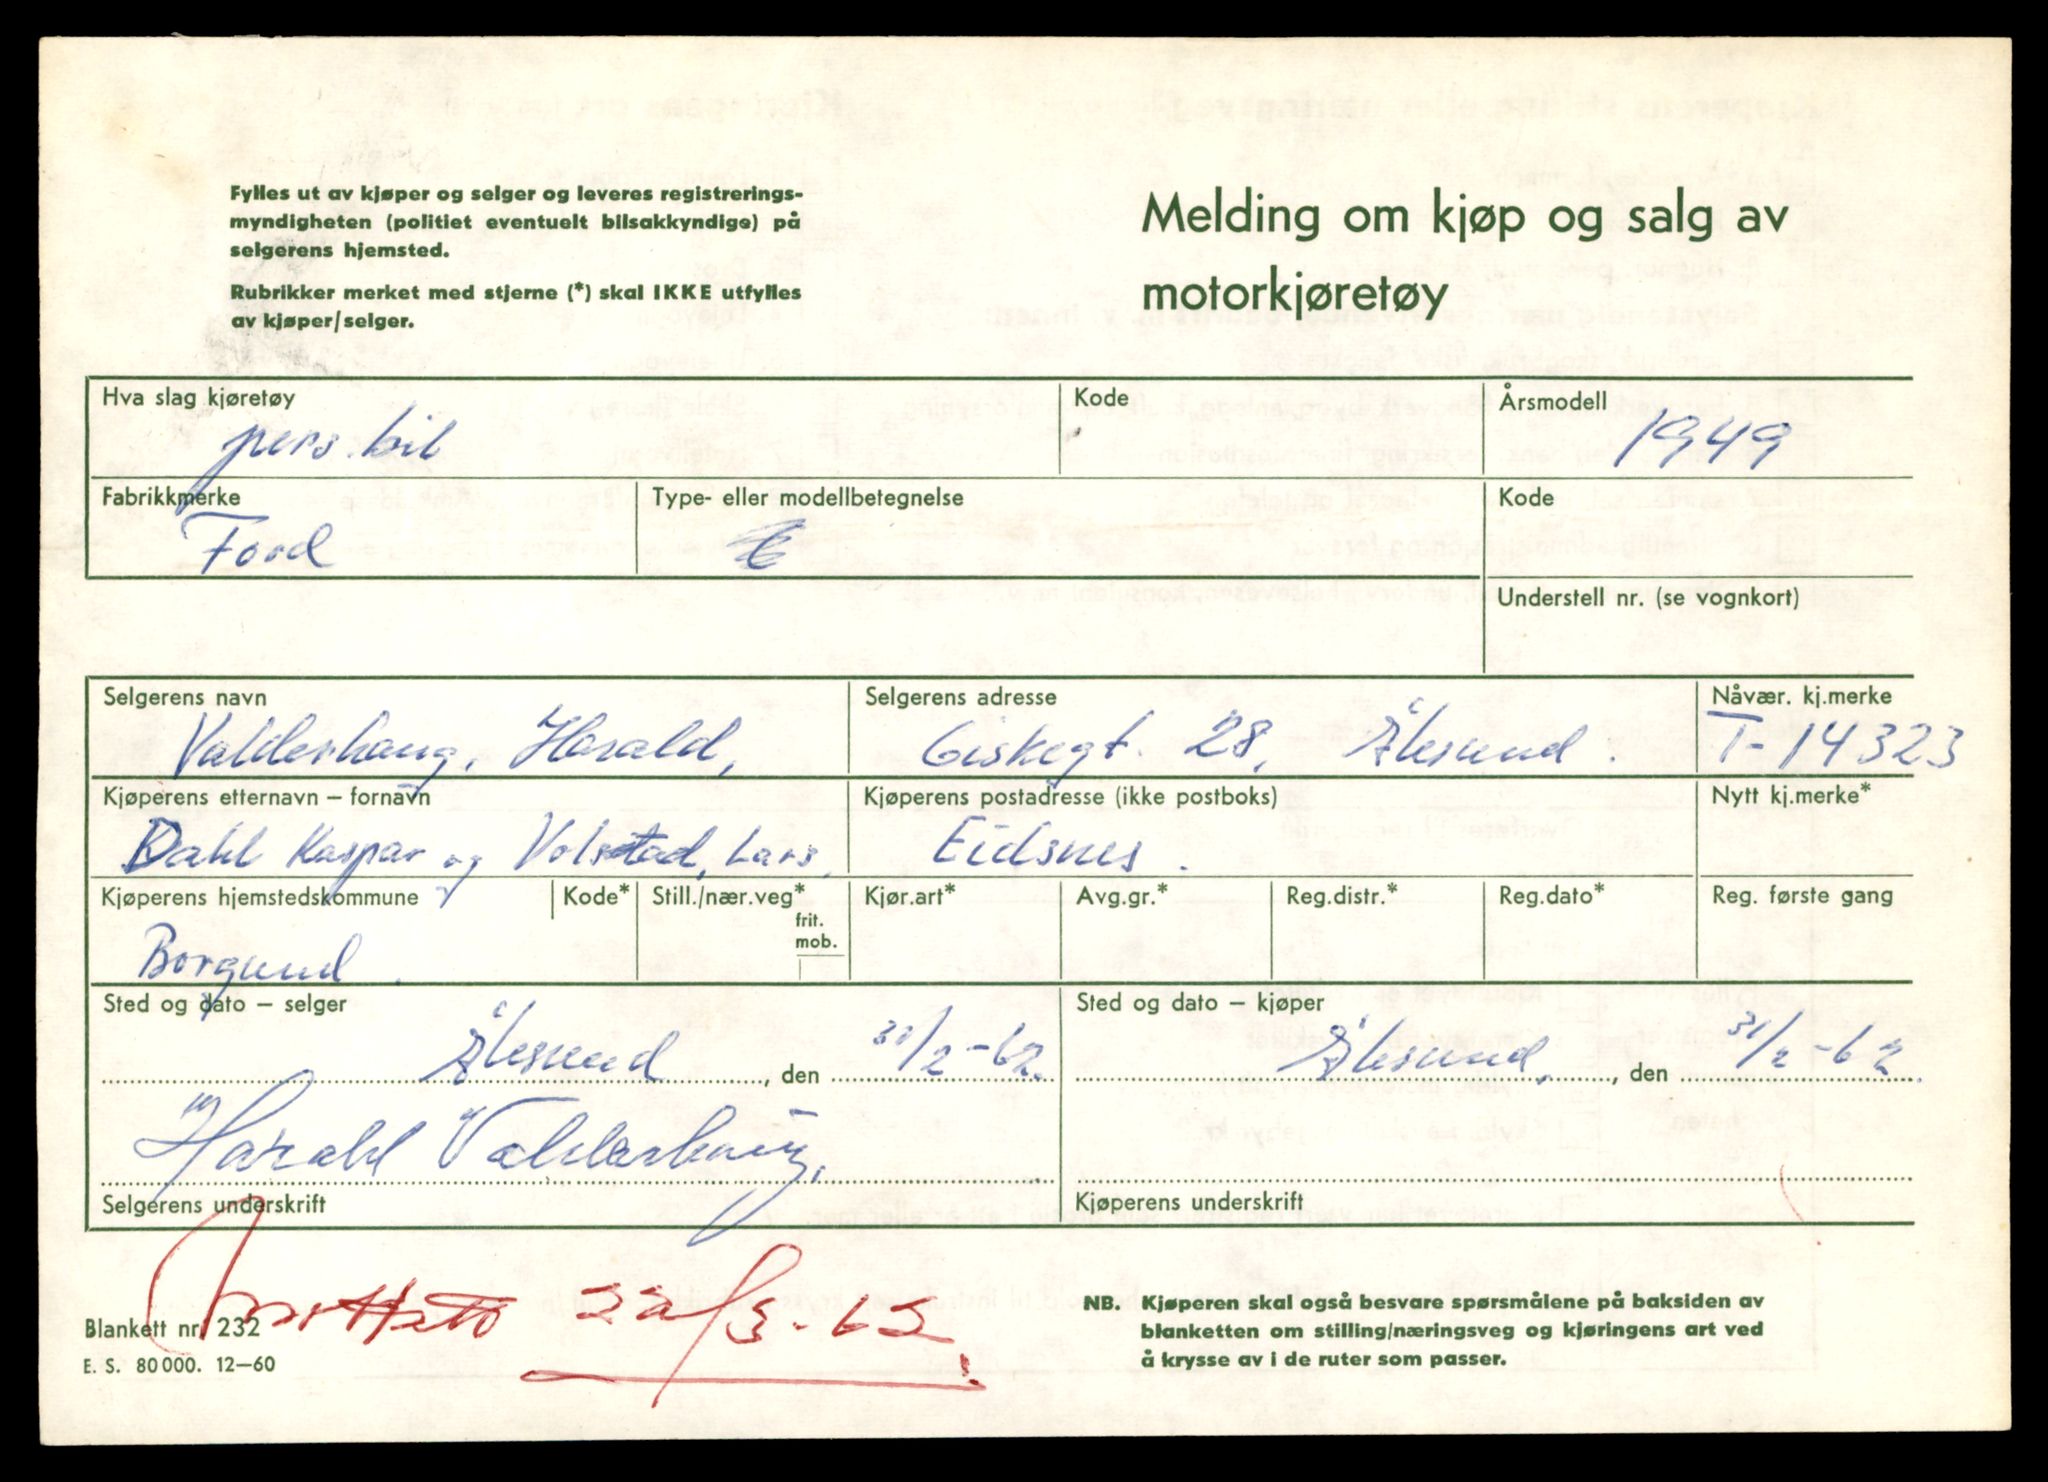 Fylles ut av kjøper og selger og leveres registrerings-
myndigheten (politiet eventuelt bilsakkyndige) på
selgerens hjemsted.
Rubrikker merket med stjerne (*) skal IKKE utfylles
av kjøper/selger.
Melding om kjøp og salg av
motorkjøretøy
Hva slag kjøretøy
pers.bil
Kode
Årsmodell
1949
Fabrikkmerke
Ford
Type- eller modellbetegnelse
Kode
Understell nr. (se vognkort)
Selgerens navn
Valderhaug, Harald,
Selgerens adresse
Giskegt. 28, Ålesund.
Nåvær. kj.merke
T-14323
Kjøperens etternavn – fornavn
Dahl Kaspar og Volstad, Lars.
Kjøperens postadresse (ikke postboks)
Eidsnes.
Nytt kj.merke*
Kjøperens hjemstedskommune
Borgund.
Kode*
Still./nær.veg*
frit.
mob.
Kjør.art*
Avg.gr.*
Reg.distr.*
Reg.dato*
Reg. første gang
Sted og dato – selger
Ålesund, den 31/2-62.
Sted og dato – kjøper
Ålesund, den 31/2-62.
Harald Valderhaug.
Selgerens underskrift
Kjøperens underskrift
Blankett nr. 232
E. S. 80 000. 12–60
NB. Kjøperen skal også besvare spørsmålene på baksiden av
blanketten om stilling/næringsveg og kjøringens art ved
å krysse av i de ruter som passer.